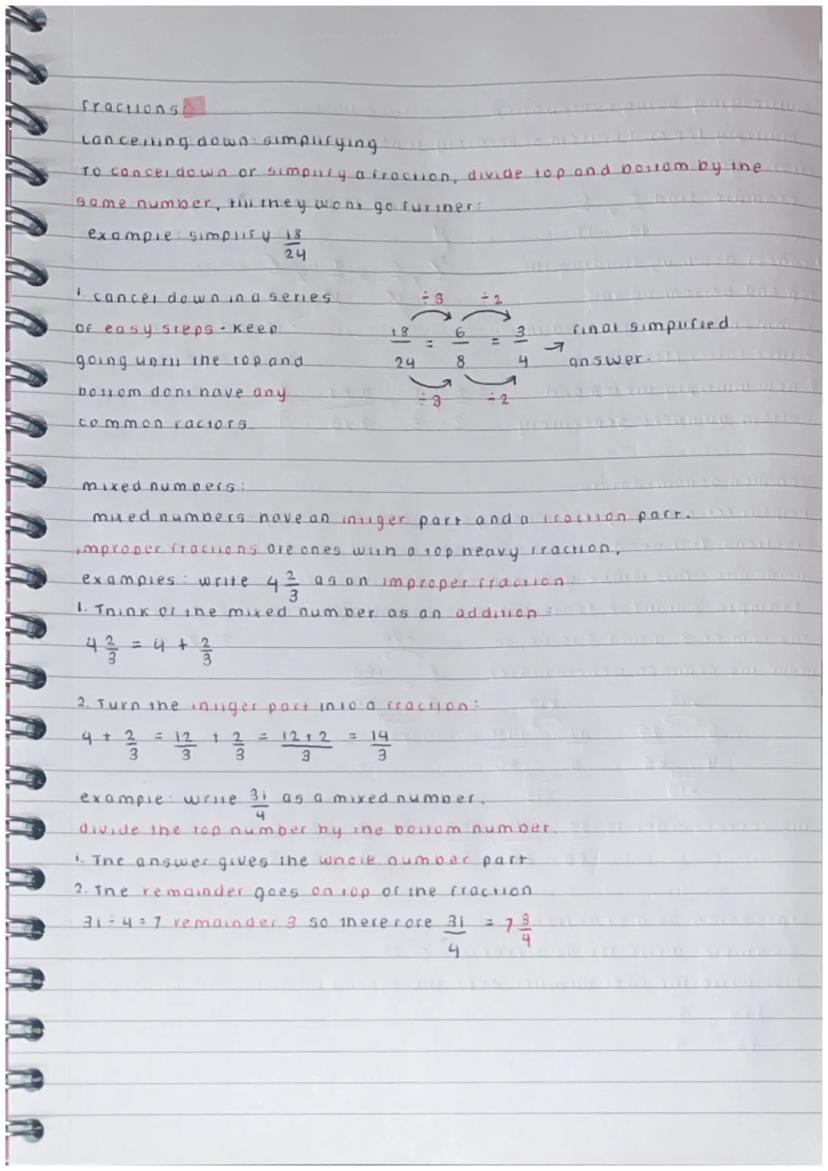 fractions
cancelling down: simplifying
To cancel down or simplify a fraction, divide top and bottom by the
same number, till they wont go further:
example: simplify 18/24
1. cancel down in a series
of easy steps - keep
going until the top and
bottom dont have any
common factors.
÷3 ÷2
18/24 = 6/8 = 3/4 → final simplified
answer.
÷3 ÷2
mixed numbers:
mixed numbers have an intiger part and a fraction part.
improper fractions are ones with a top heavy fraction,
examples: write 4 2/3 as an improper fraction
1. Think of the mixed number as an addition:
4 2/3 = 4 + 2/3
2. Turn the intiger part into a fraction:
4 + 2/3 = 12/3 + 2/3 = 12+2/3 = 14/3
example: write 31/4 as a mixed number.
divide the top number by the bottom number.
1. The answer gives the whole number part
2. The remainder goes on top of the fraction
31 ÷ 4 = 7 remainder 3 so therefore 31/4 = 7 3/4